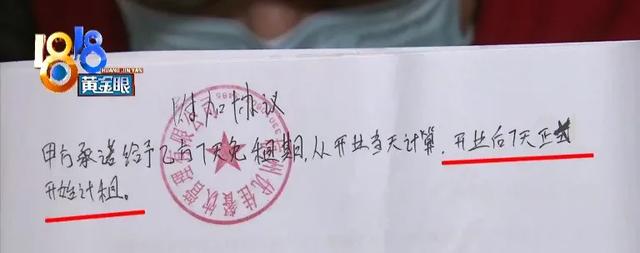 1818
黄金眼
HUANG JIN YAN
附加协议
甲方承诺给予乙方7天免租期,从开业当天计算,开业后7天正式
开始计租。
州优佳餐饮管理有限公司